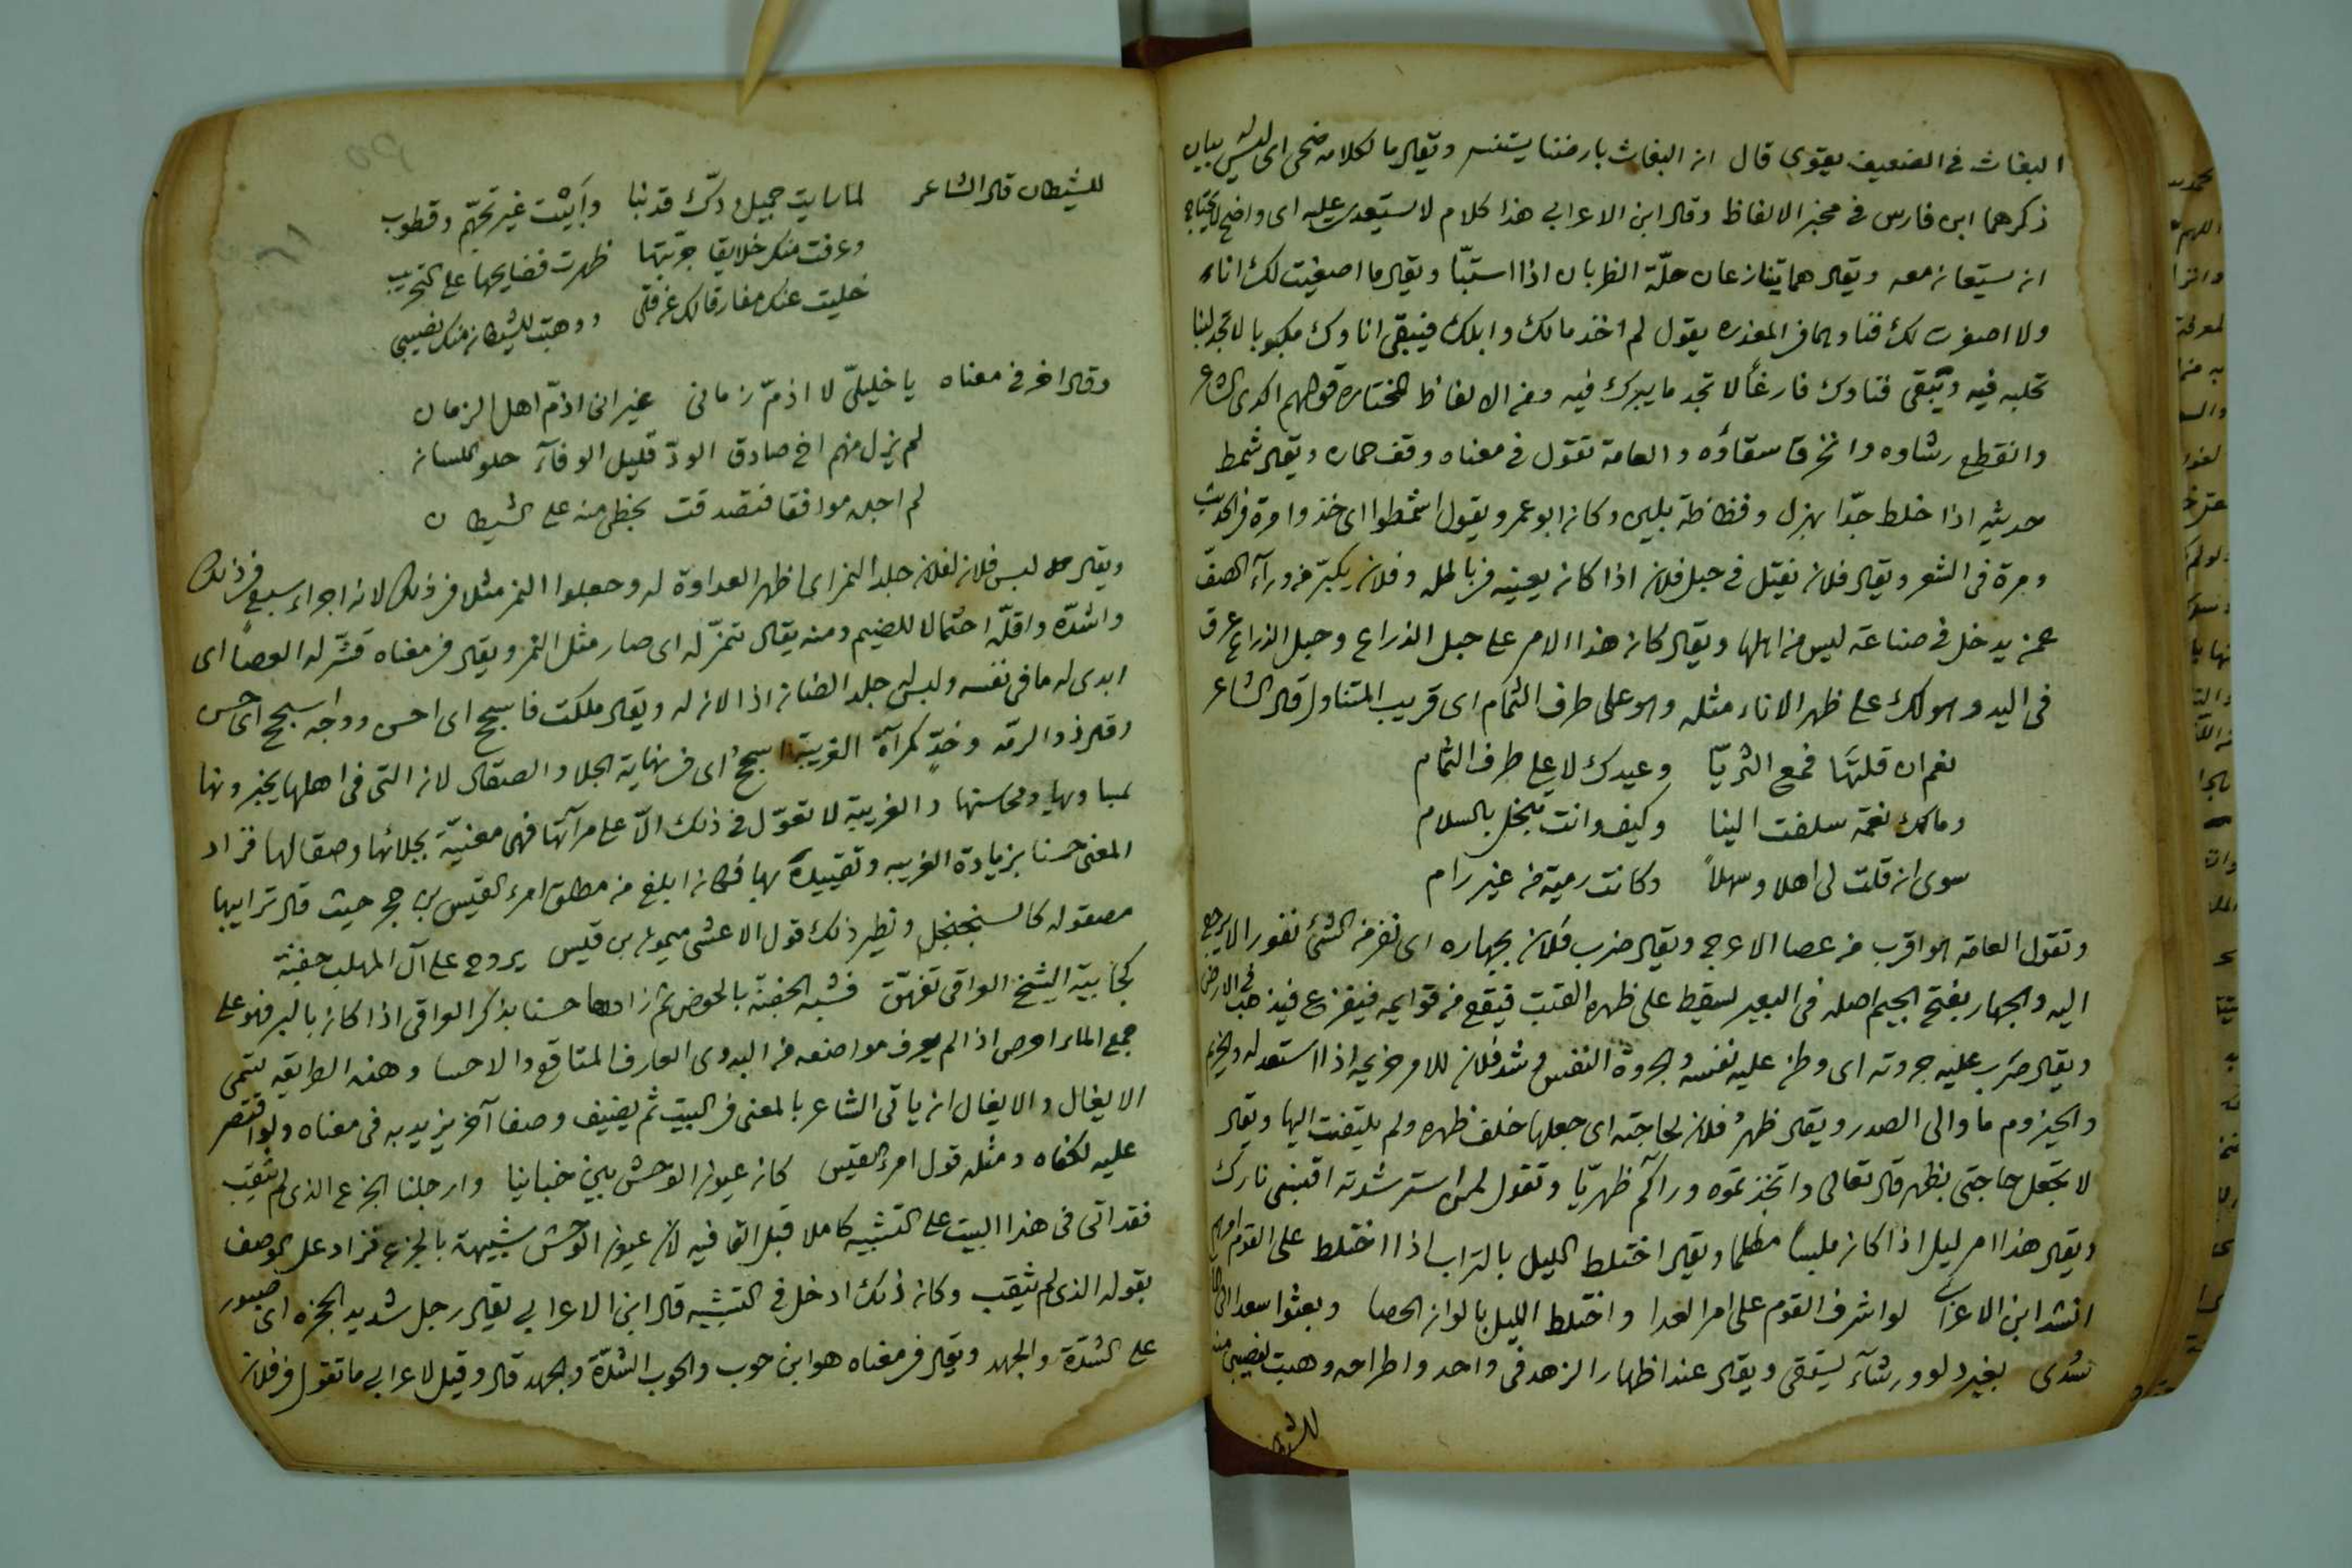 البغاث في الضعيف يقوى قال ان البغاث بارضنا يستنسر ويقال ما لكلامه ضحى اى ليس له بيان
ذكرهما ابن فارس في مخير الالفاظ وقال ابن الاعرابي هذا كلام لا يستعدى عليه اى واضح لا يحتاج
ان يستعان معه ويقال هما يتنازعان جلّة الظربان اذا استبّا ويقال ما اصغيت لك اناء
ولا اصفرت لك فناء وهما في المعذرة يقول لم اخذ مالك وابلك فيبقى اناوك مكبوبا لا تجد لبنا
تحلبه فيه ويبقى فناوك فارغاً لا تجد ما يبرك فيه ومن الالفاظ المختارة قولهم اكدى الشاعر
وانقطع رشاوه وانخرق سقاؤه والعامة تقول في معناه وقف حماره ويقال شمط
حديثه اذا خلط جدّا بهزل وفظاظة بلين وكان ابو عمرو يقول اشمطوا اى خذوا مرة في الحديث
ومرة في الشعر ويقال فلان يفتل في حبل فلان اذا كان يعينه في باطله وفلان يكبّر من ورآء الصف
عمن يدخل في صناعة ليس من اهلها ويقال كان هذا الامر على حبل الذراع وحبل الذراع عرق
فى اليد وهو لك على ظهر الاناء مثله وهو على طرف الثمام اى قريب المتناول قال الشاعر
نعم ان قلتَها فمع الثريّا وعيدك لا على طرف الثمام
ومالك نعمة سلفت الينا وكيف وانت تبخل بالسلام
سوى ان قلت لى اهلا وسهلاً وكانت رمية من غير رام
وتقول العامة هو اقرب من عصا الاعرج ويقال ضرب فلان بجهازه اى نفر من الشئ نفورا لا يرجع
اليه والجهاز بفتح الجيم اصله فى البعير يسقط على ظهره القتب فيقع من قوايمه فيفزع فيذهب في الارض
ويقال ضرب عليه جروته اى وطن عليه نفسه والجروة النفس وشد فلان للامر حزيمه اذا استعد له والحزيم
والحيزوم ما والى الصدر ويقال ظهرَ فلان لحاجته اى جعلها خلف ظهره ولم يلتفت اليها ويقال
لا تجعل حاجتى بظهر قال تعالى واتخذتموه ورآكم ظهريّا وتقول لمن استرشدته اقبسنى نارك
ويقال هذا امر ليل اذا كان ملبساً مظلما ويقال اختلط الليل بالتراب اذا اختلط على القوم امرهم
انشد ابن الاعرابي لو اشرف القوم على امر العدا واختلط الليل بالوان الحصا وبعثوا سعدا الى الما
سُدى بغير دلو ورشآء يستقى ويقال عند اظهار الزهد فى واحد واطراحه وهبت نصيبى منه
للشيطان
للشيطان قال الشاعر لما رايت جميل ودّك قد نبا وأبَيْت غير تجهّم وقطوب
وعرفت منك خلايقا جرّبتها ظهرت فضايحها على التجريب
خليت عنك مفارقا لك عن قلى ووهبت للشيطان منك نصيبى
وقال اخر في معناه يا خليلىّ لا اذمّ زمانى غير انى اذمّ اهل الزمان
لم يزل منهم اخ صادق الودّ قليل الوفآء حلو اللسان
لم اجده موافقا فتصدقت بحظى منه على الشيطان
ويقال لبس فلان لفلان جلد النمر اى اظهر العداوة له وجعلوا النمر مثلا في ذلك لانه اجراء سبع في ذلك
واشدّه واقلّه احتمالا للضيم ومنه يقال تنمّر له اى صار مثل النمر ويقال في معناه قشّر له العصا اى
ابدى له ما فى نفسه ولبس له جلد الضان اذا لان له ويقال ملكت فاسجح اى احسن ووجه اسجح اى حسن
وقال ذو الرمة وخدّ كمرآة الغريبة اسجح اى في نهاية الجلا والصقال لان التى فى اهلها يخبرونها
بمساويها ومحاسنها والغريبة لا تعوّل في ذلك الّا على مرآتها فهى معنيّة بجلائها وصقالها فزاد
المعنى حسنا بزيادة الغريبه وتقييده بها فكان ابلغ من مطلق امرء القيس بن حجر حيث قال ترايبها
مصقوله كالسنجنجل ونظير ذلك قول الاعشى ميمون بن قيس يروح على آل المهلب جفنة
كجابية الشيخ العراقى تفهق فشبه الجفنة بالحوض ثم زادها حسنا بذكر العراقى اذا كان بالبر فهو على
جمع الماء احرص اذا لم يعرف مواضعه من البدوى العارف المناقع والاحسا وهذه الطريقه تسمى
الايغال والايغال ان ياتى الشاعر بالمعنى في البيت ثم يضيف وصفا آخر يزيد به فى معناه ولو اقتصر
عليه لكفاه ومثله قول امرء القيس كان عيون الوحش بين خبائنا وارجلنا الجزع الذى لم يثقب
فقد اتى فى هذا البيت على التشبيه كاملا قبل القافيه لان عيون الوحش شبيهة بالجزع فزاد على الوصف
بقوله الذى لم يثقب وكان ذلك ادخل في التشبيه قال ابن الاعرابي يقال رجل شديد الجزه اى صبور
على الشدة والجهد ويقال في معناه هو ابن حوب والحوب الشدّة والجهد قال وقيل لاعرابي ما تقول في فلان